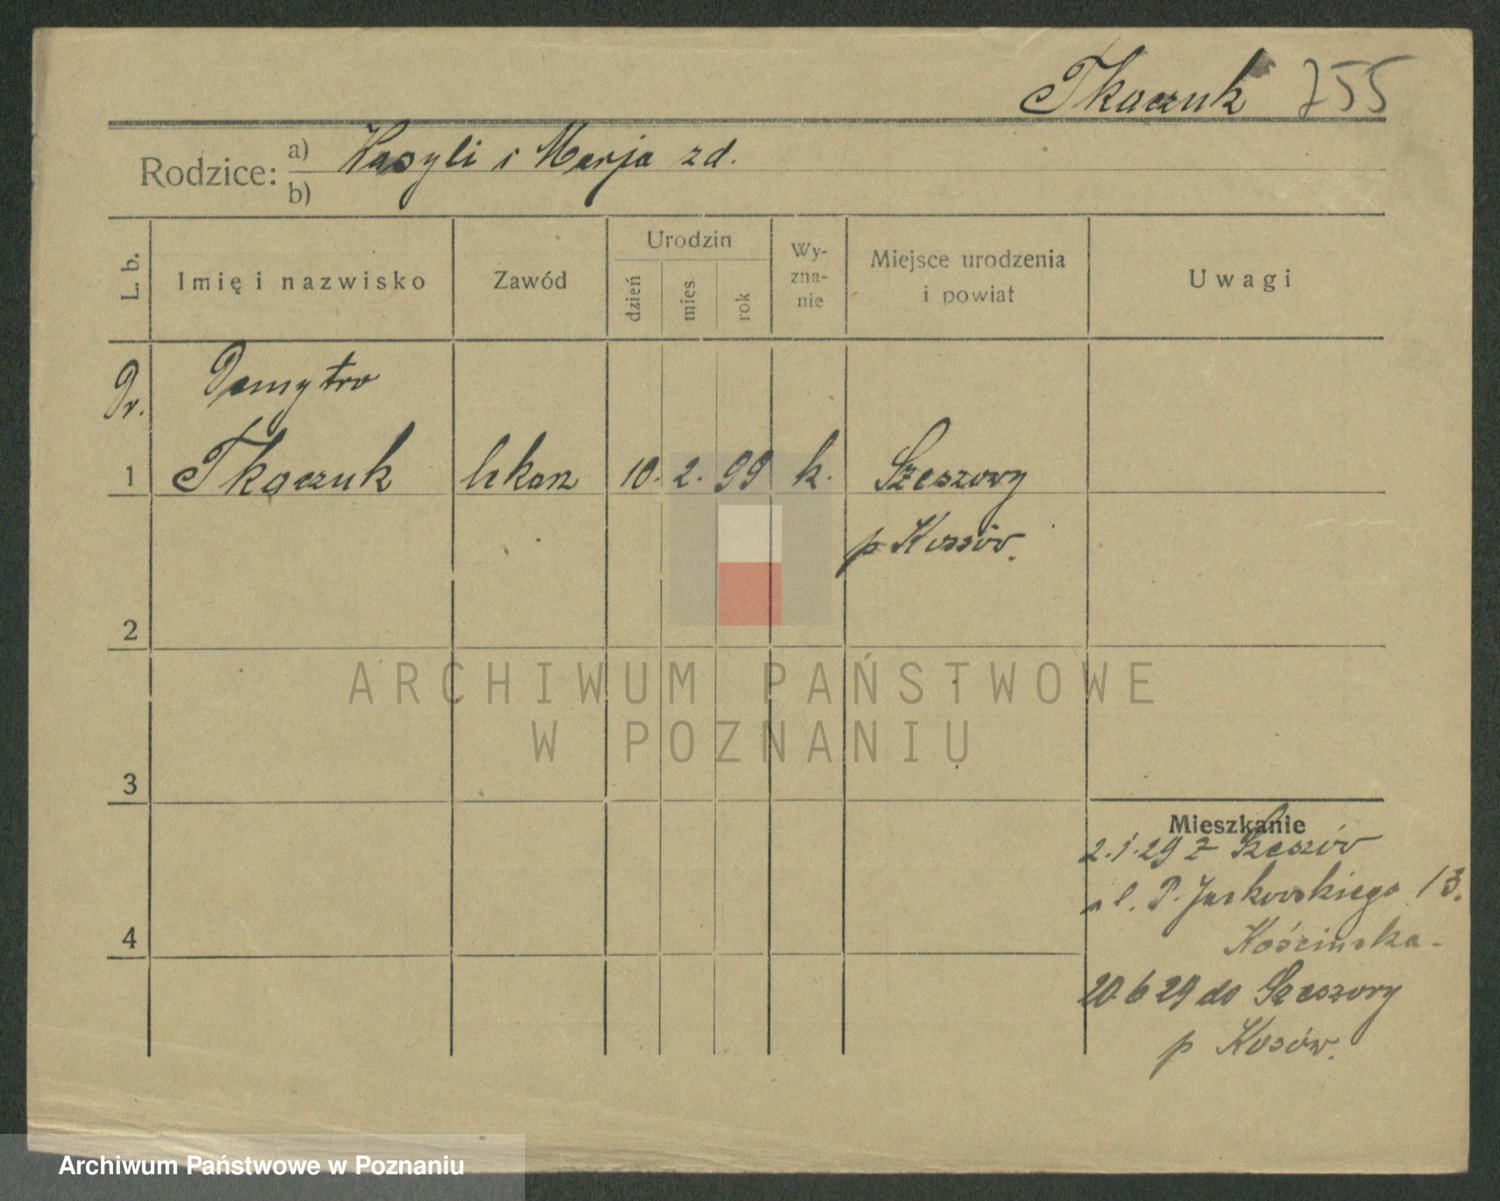 Tkaczuk 755
Rodzice: a) Wasyli i Marja zd.
b)
L. b.
Imię i nazwisko
Zawód
Urodzin
dzień
mies.
rok
Wy-
zna-
nie
Miejsce urodzenia
i powiat
Uwagi
Dr. Demytro
1 Tkaczuk lekarz 10. 2. 99 k. Szeszory
p Kosów.
2
3
4
Mieszkanie
2.1.29 z
ul. P. Jackowskiego 13.
Kościńska -
20.6 29 do Szeszory
p Kosów.
ARCHIWUM PAŃSTWOWE
W POZNANIU
Archiwum Państwowe w Poznaniu